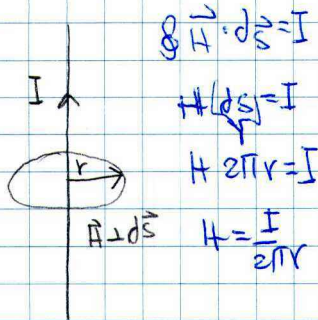 ∮ H⃗ · ds⃗ = I
I
H∫ds = I
r
H 2πr = I
H⃗ ⊥ ds⃗
H = I/2πr